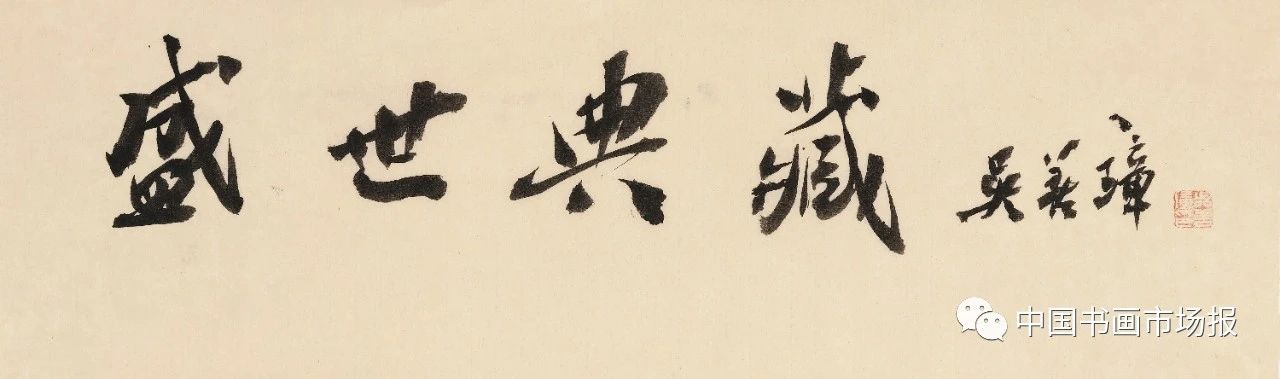 盛世典藏 吴善璋
中国书画市场报